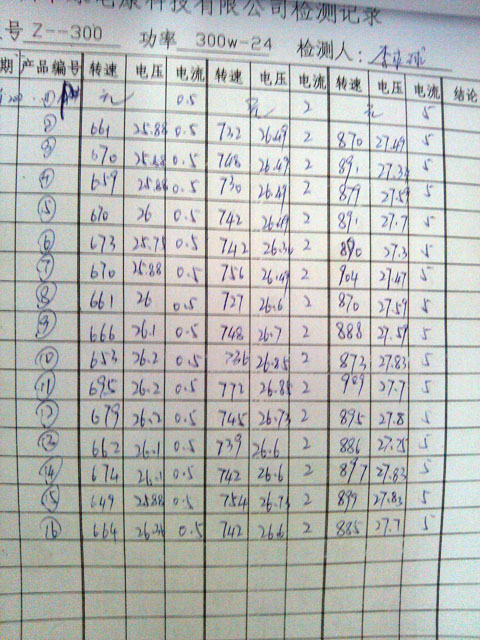 康科技有限公司检测记录
号 Z--300 功率 300w-24 检测人:
期 产品编号 转速 电压 电流 转速 电压 电流 转速 电压 电流 结论
① 0.5 2 5
② 661 25.88 0.5 732 26.49 2 870 27.49 5
③ 670 25.88 0.5 748 26.47 2 891 5
④ 659 25.88 0.5 730 26.49 2 879 27.59 5
⑤ 670 26 0.5 742 26.49 2 891 27.7 5
⑥ 673 25.75 0.5 742 2 890 27.3 5
⑦ 670 25.88 0.5 756 26.49 2 904 27.47 5
⑧ 661 26 0.5 727 26.6 2 870 27.59 5
⑨ 666 26.1 0.5 748 26.7 2 888 27.59 5
⑩ 653 26.2 0.5 736 26.85 2 873 27.83 5
⑪ 695 26.2 0.5 772 26.85 2 27.7 5
⑫ 679 26.2 0.5 745 26.73 2 895 27.8 5
⑬ 662 26.1 0.5 739 26.6 2 886 27.75 5
⑭ 674 26.1 0.5 742 26.6 2 897 27.83 5
⑮ 649 25.88 0.5 754 26.73 2 899 27.83 5
⑯ 664 0.5 742 26.6 2 885 27.7 5